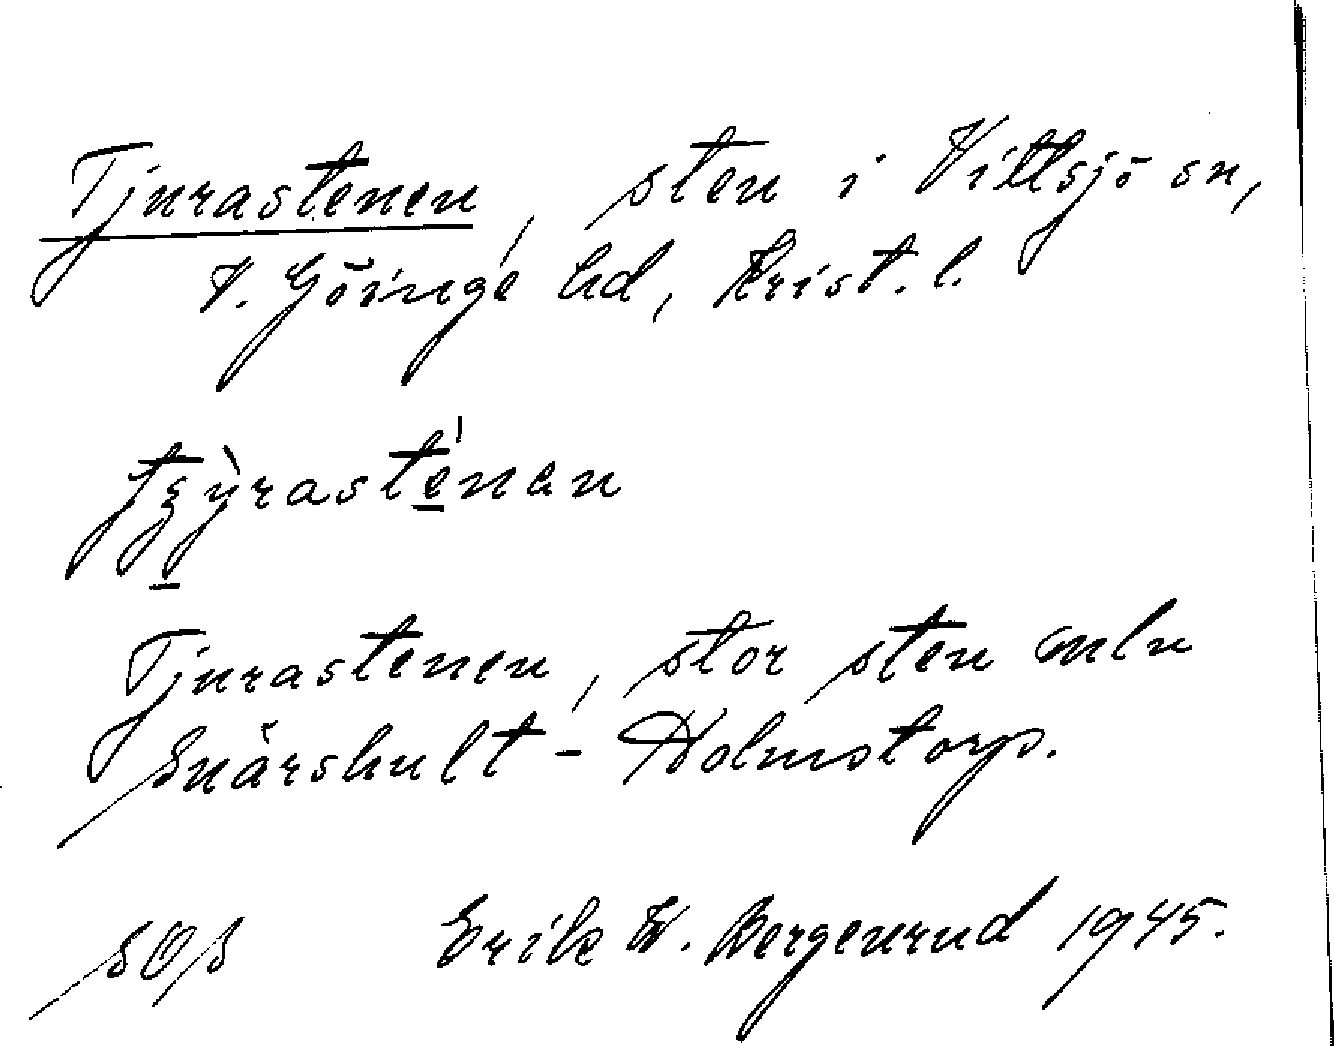 Tjurastenen, sten i Vittsjö sn,
V. Göinge hd, Krist. l.
Tjurastenen, stor sten mln
Snärshult - Holmstorp.
SOS Erik W. Bergenrud 1945.